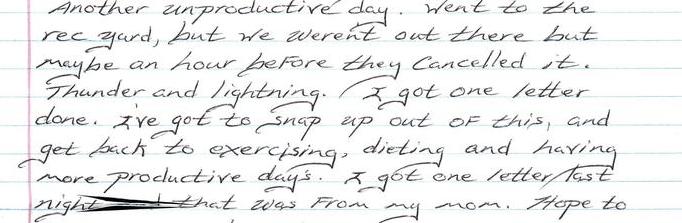 Another unproductive day. Went to the
rec yard, but we weren't out there but
maybe an hour before they cancelled it.
Thunder and lightning. I got one letter
done. I've got to snap up out of this, and
get back to exercising, dieting and having
more productive day's. I got one letter last
night that was from my mom. Hope to